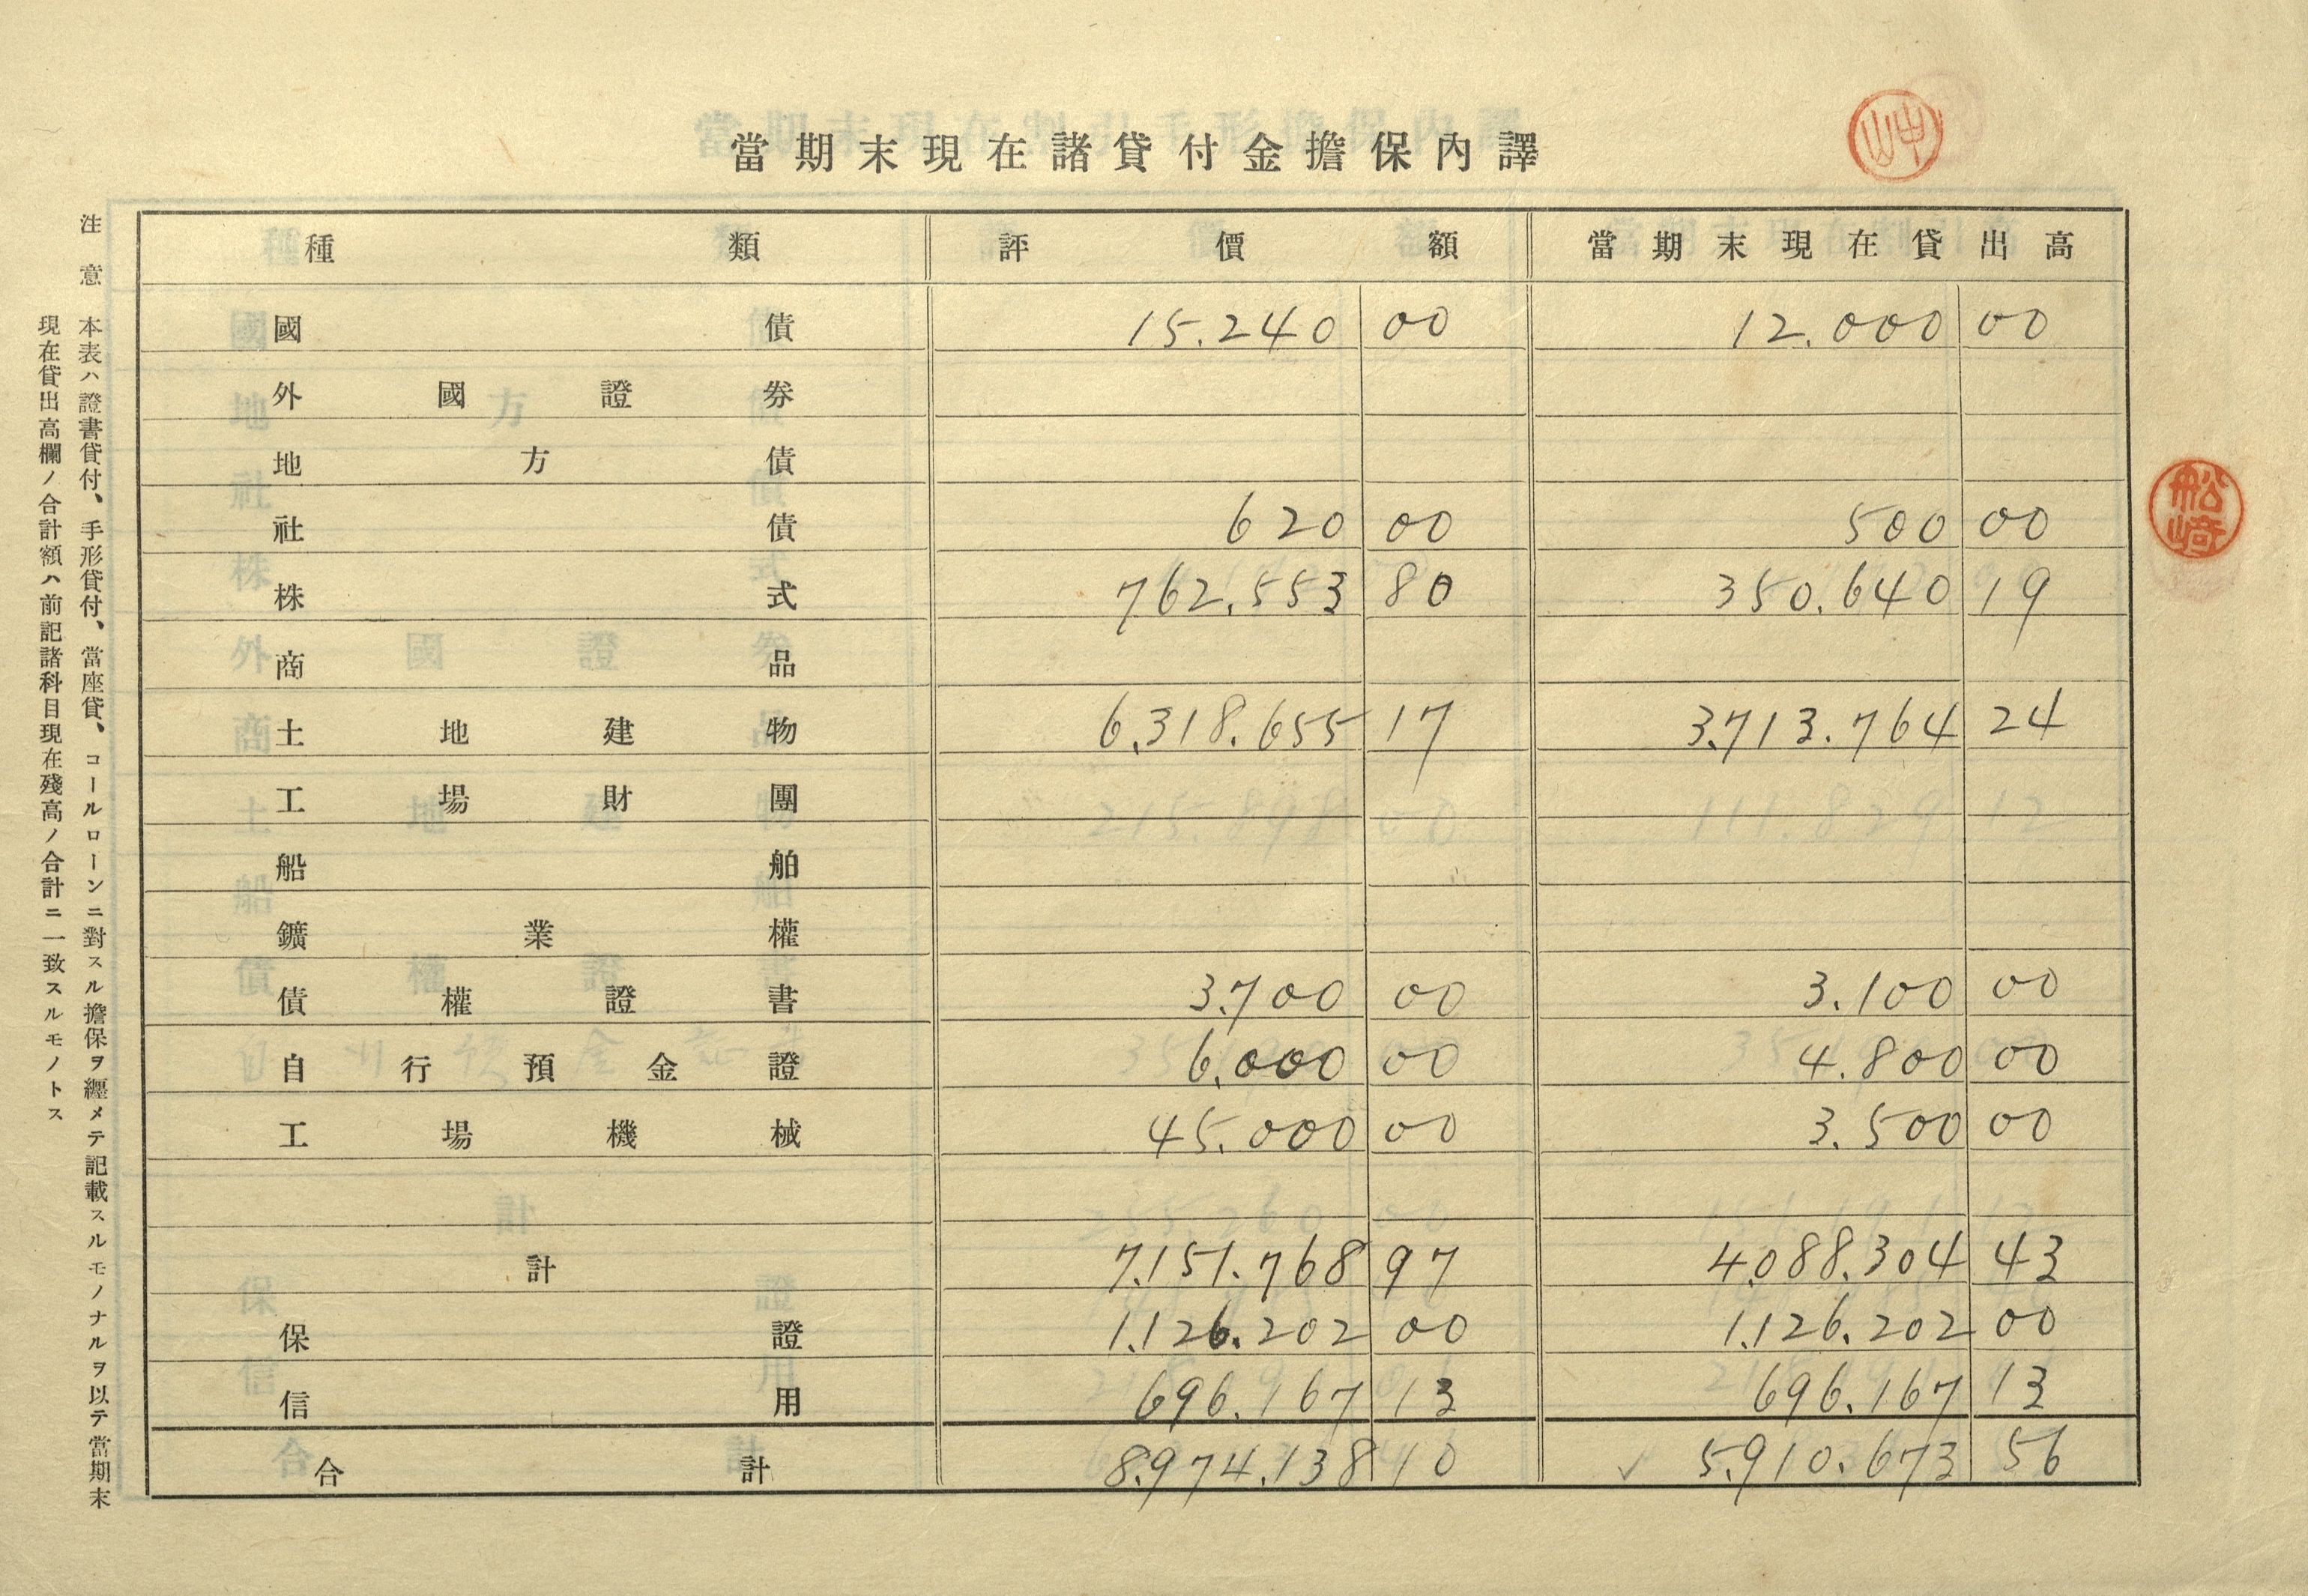 當期末現在諸貸付金擔保內譯
種類 評價額 當期末現在貸出高
國債 15.240 00 12.000 00
外國證券
地方債
社債 620 00 500 00
株式 762.553 80 350.640 19
商品
土地建物 6.318.655 17 3.713.764 24
工場財團
船舶
鑛業權
債權證書 3.700 00 3.100 00
自行預金證 6.000 00 4.800 00
工場機械 45.000 00 3.500 00
計 7.151.768 97 4.088.304 43
保證 1.126.202 00 1.126.202 00
信用 696.167 13 696.167 13
合計 8.974.138 10 ✓ 5.910.673 56
注意
本表ハ證書貸付、手形貸付、當座貸、コールローンニ對スル擔保ヲ纒メテ記載スルモノナルヲ以テ當期末
現在貸出高欄ノ合計額ハ前記諸科目現在殘高ノ合計ニ一致スルモノトス
船﨑